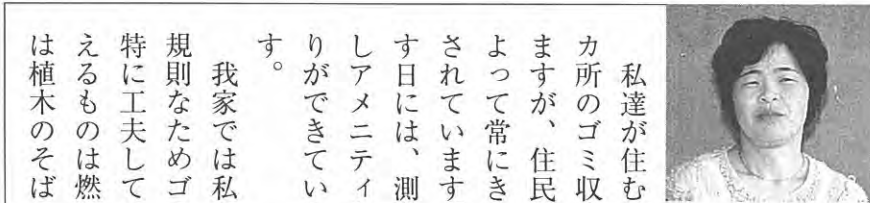 私達が住む
カ所のゴミ収
ますが、住民
よって常にき
されています
す日には、測
しアメニティ
りができてい
す。
我家では私
規則なためゴ
特に工夫して
えるものは燃
は植木のそば